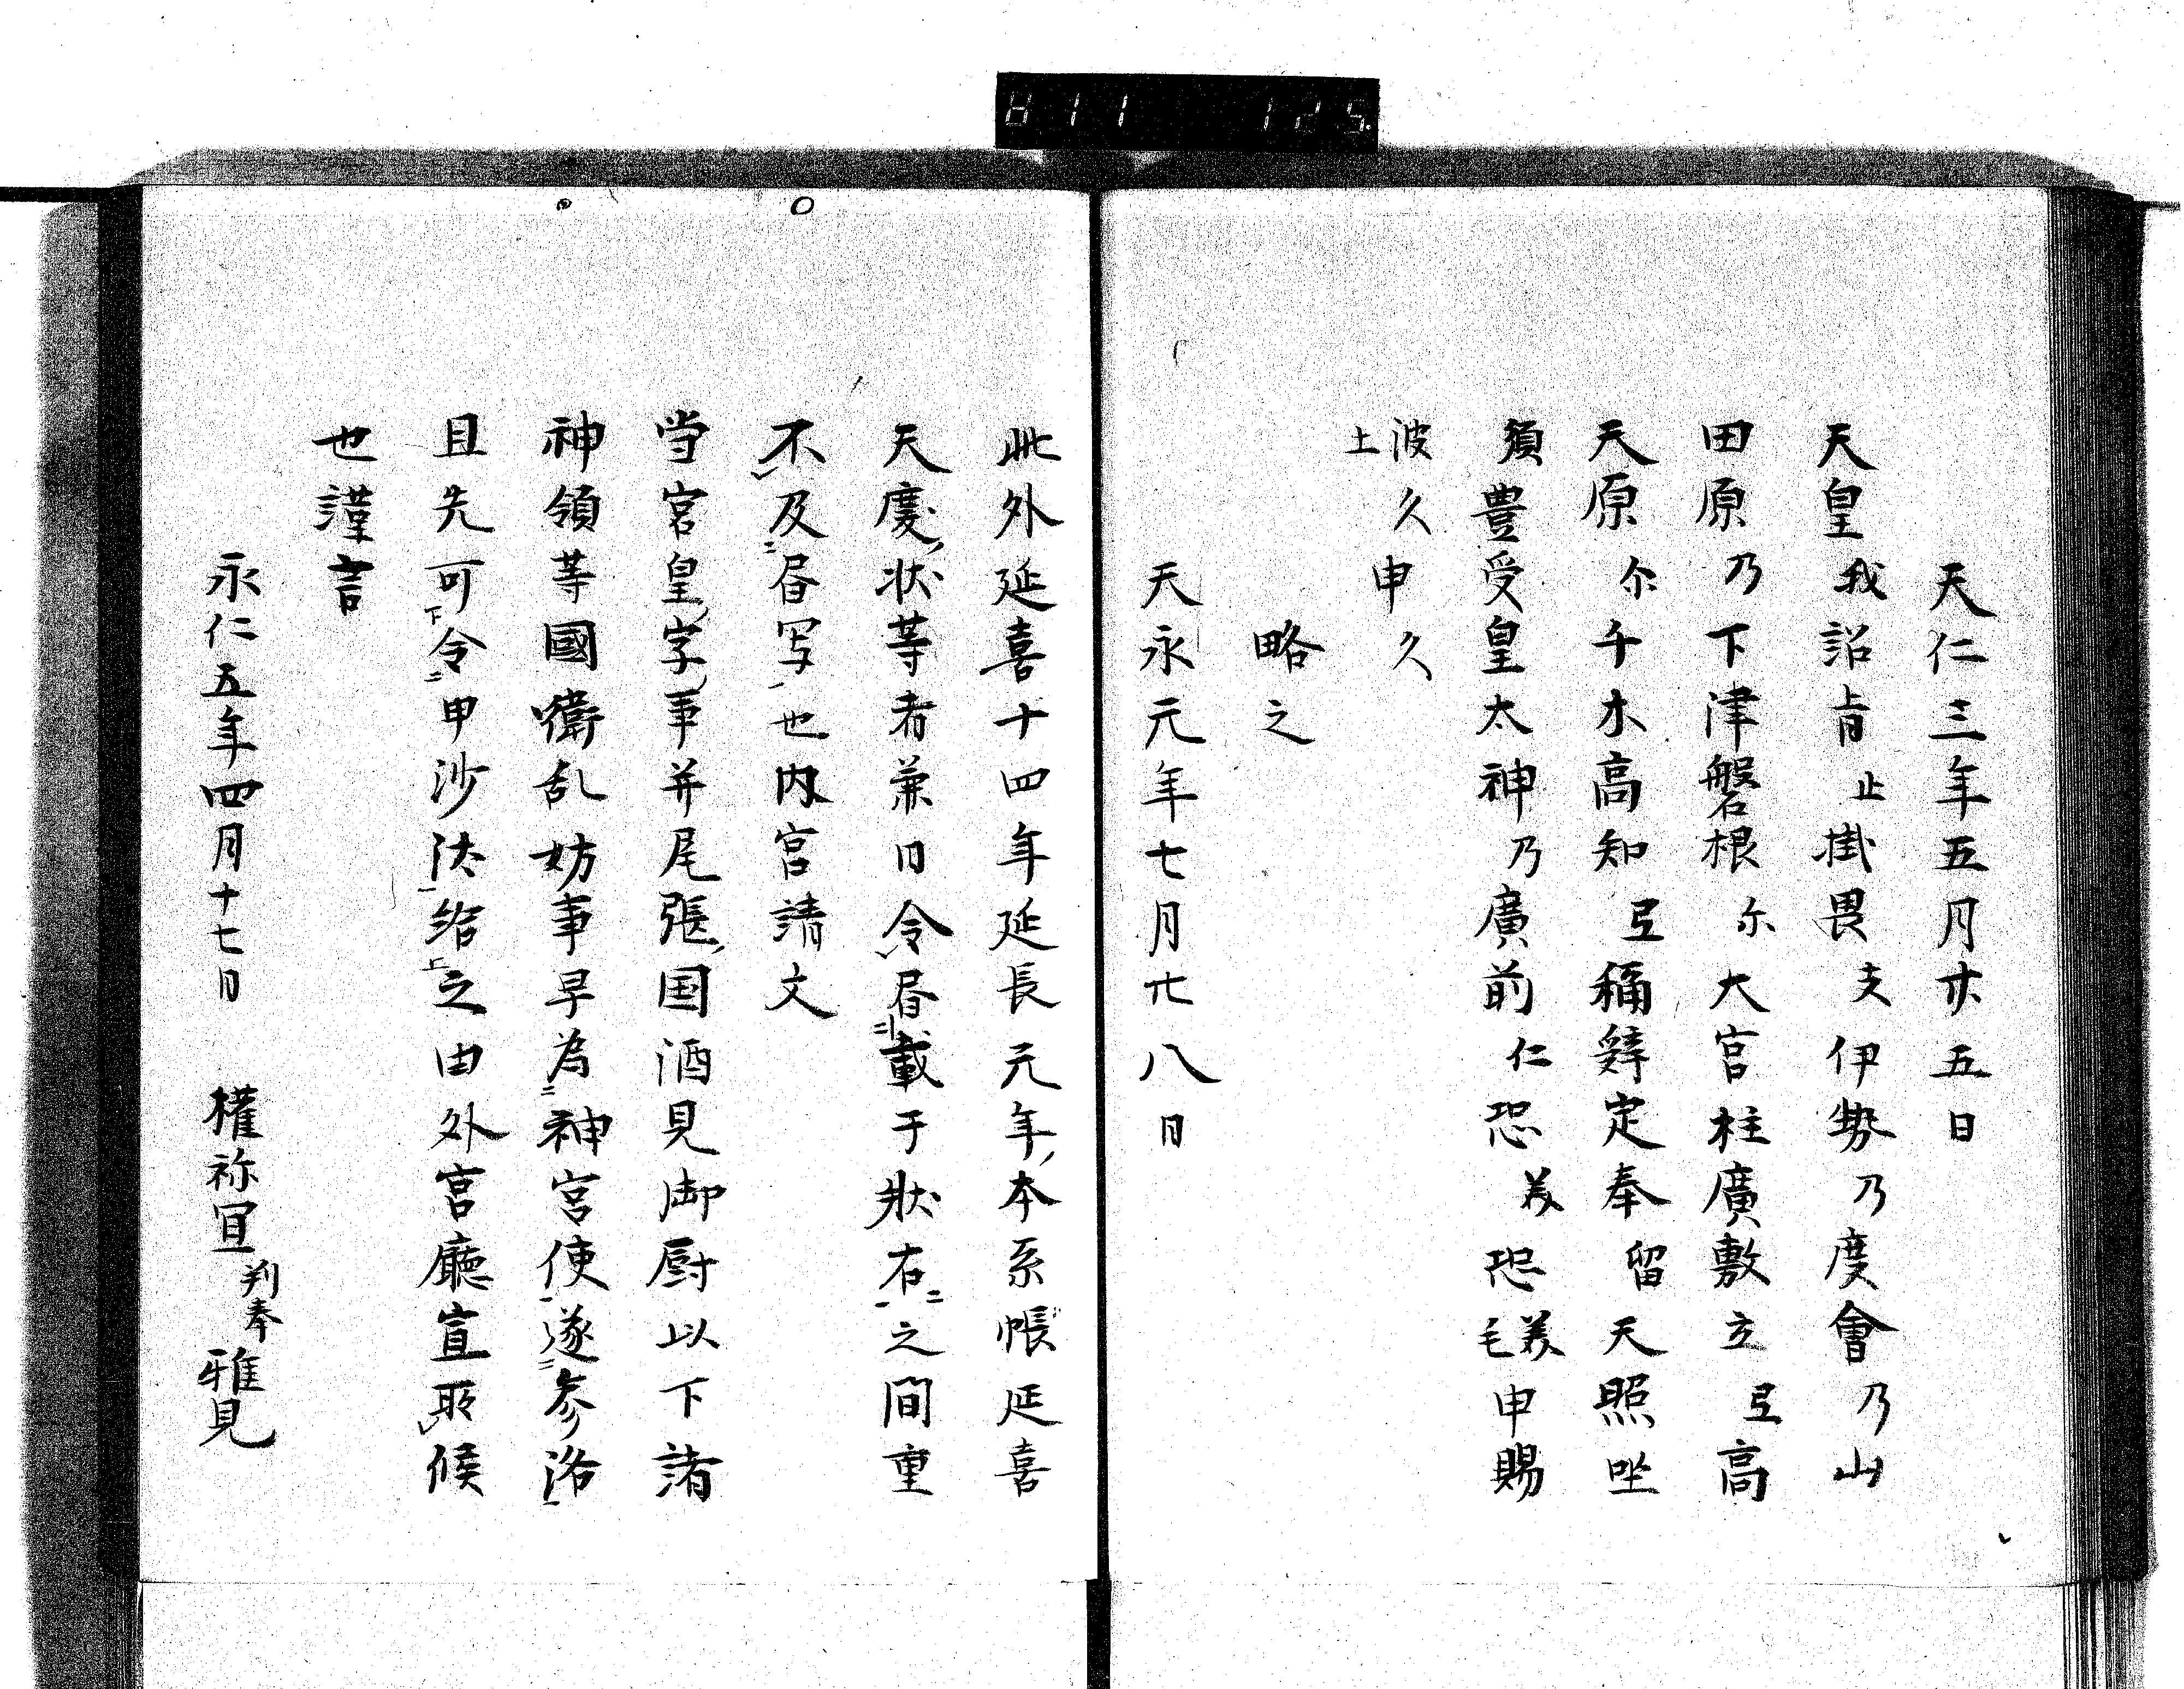 811 125
天仁三年五月廿五日
天皇我詔旨止掛畏支伊勢乃度會乃山
田原乃下津磐根尓大宮柱廣敷立弖高
天原尓千木高知弖稱辞定奉留天照坐
須豊受皇太神乃廣前仁恐美恐美毛申賜
波久申久
土
略之
天永元年七月廿八日
此外延喜十四年延長元年本系帳延喜
天慶状等者兼日令㫺載于状右之間重
不及㫺写也内宮請文
当宮皇字事并尾張国酒見御厨以下諸
神領等國衙乱妨事早為神宮使遂参洛
且先可令申沙汰給之由外宮廳宣所候
也謹言
永仁五年四月十七日 權祢宜判奉雅見